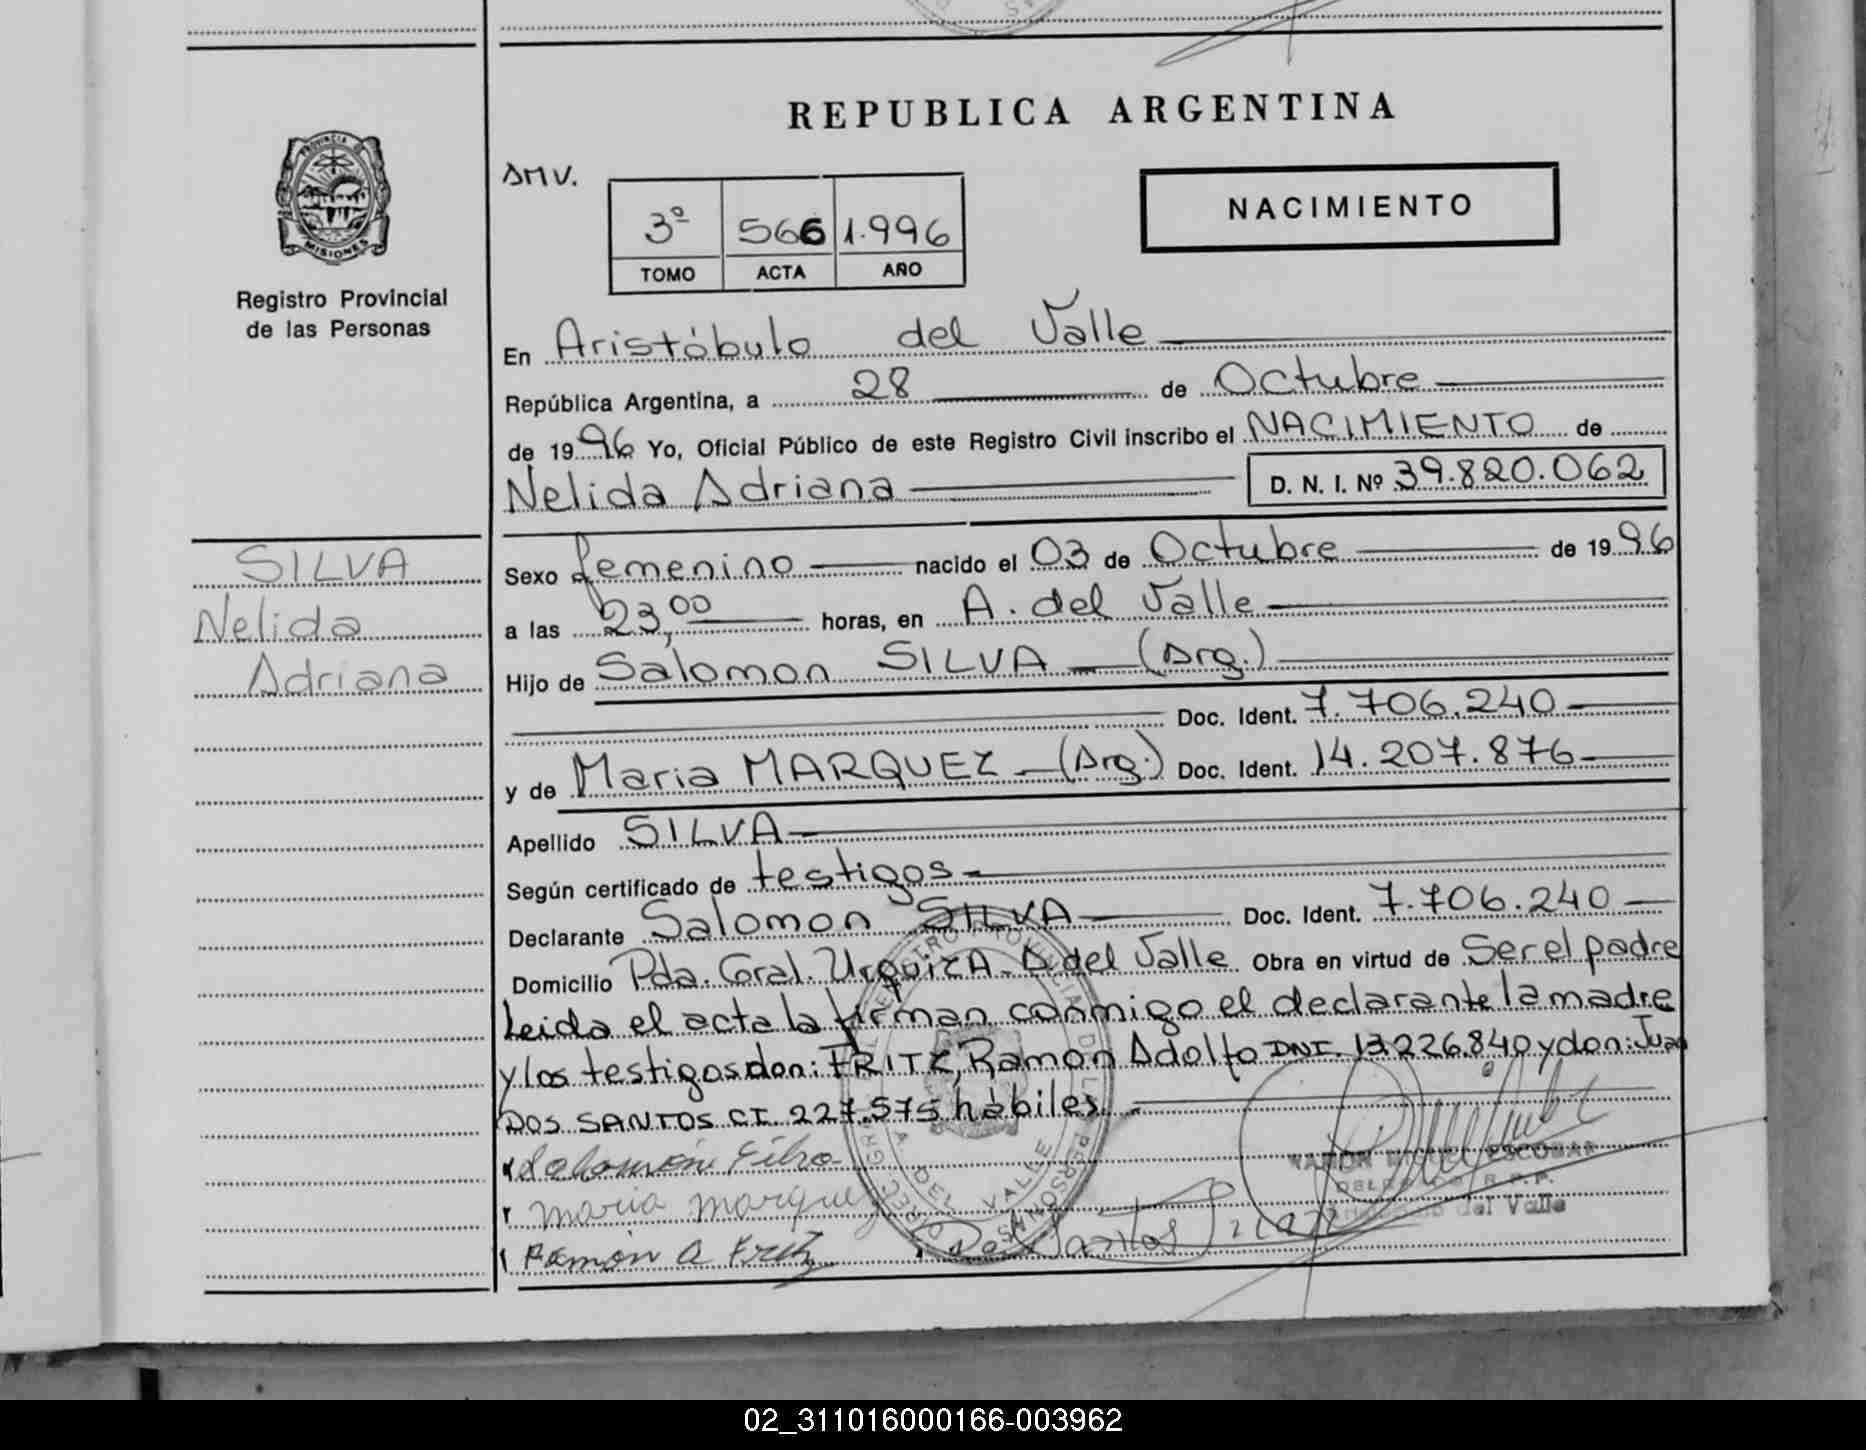 REPUBLICA ARGENTINA
PROVINCIA DE
MISIONES
Registro Provincial
de las Personas
AMV.
3º 566 1.996
TOMO ACTA AÑO
NACIMIENTO
En Aristóbulo del Valle
República Argentina, a 28 de Octubre
de 1996 Yo, Oficial Público de este Registro Civil inscribo el NACIMIENTO de
Nelida Adriana D. N. I. Nº 39.820.062
SILVA
Nelida
Adriana
Sexo femenino nacido el 03 de Octubre de 1996
a las 23,00 horas, en A. del Valle
Hijo de Salomon SILVA (Arg.)
Doc. Ident. 7.706.240
y de Maria MARQUEZ (Arg.) Doc. Ident. 14.207.876
Apellido SILVA
Según certificado de testigos
Declarante Salomon SILVA Doc. Ident. 7.706.240
Domicilio Pda. Gral. UrquizA - A del Valle Obra en virtud de Ser el padre
Leida el acta la firman conmigo el declarante la madre
y los testigos don: FRITZ, Ramon Adolfo DNI. 13.226.840 y don: Juan
DOS SANTOS CI. 227.575 hábiles.
Salomon Silva
maria marquez
Ramón A Fritz
Dos Santos Juan
RAMON MIGUEL ESCOBAR
DELEGADO R.P.P.
Aristobulo del Valle
A. DEL VALLE
02_311016000166-003962